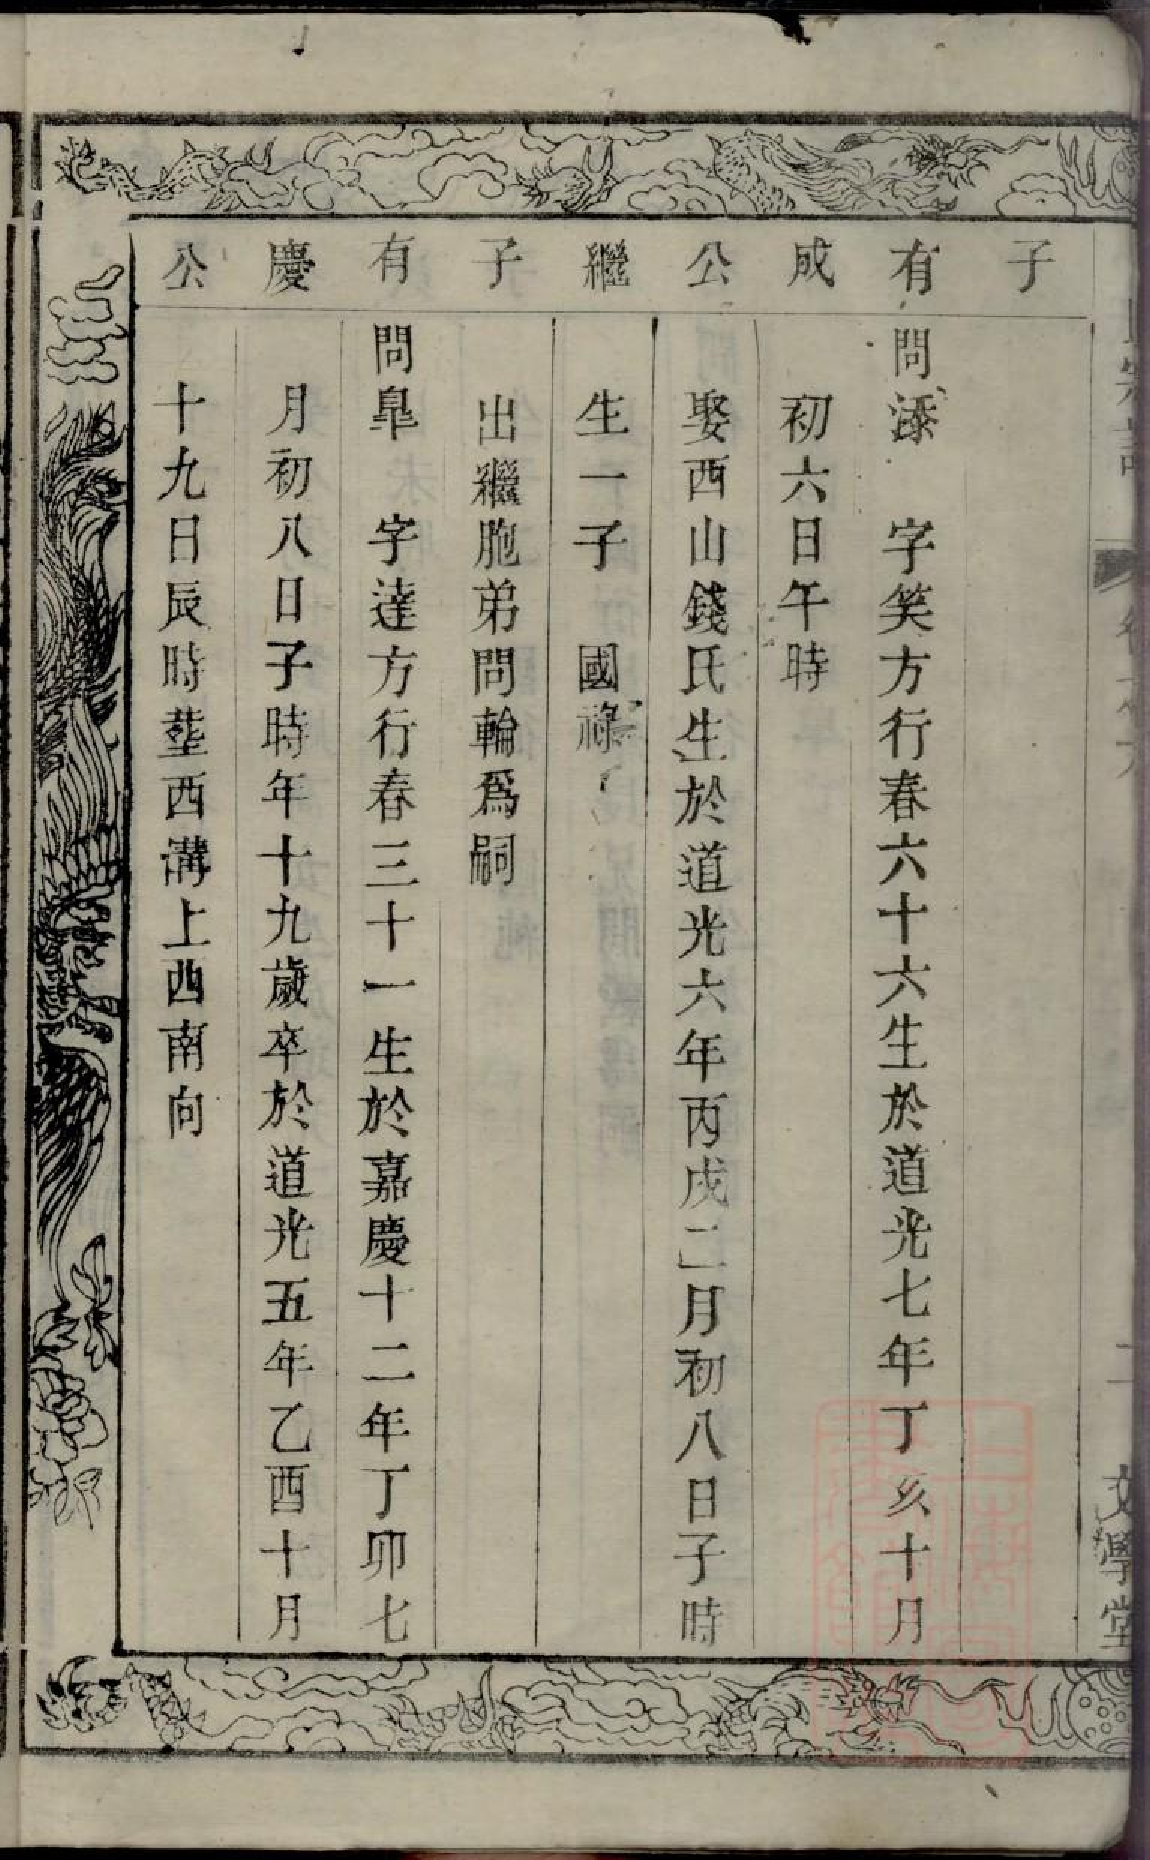 子
有 問添 字笑方行春六十六生於道光七年丁亥十月
成 初六日午時
公 娶西山錢氏生於道光六年丙戌二月初八日子時
繼 生一子 國祿
子 出繼胞弟問輪爲嗣
有 問臯 字達方行春三十一生於嘉慶十二年丁卯七
慶 月初八日子時年十九歲卒於道光五年乙酉十月
公 十九日辰時塟西溝上西南向
文學堂